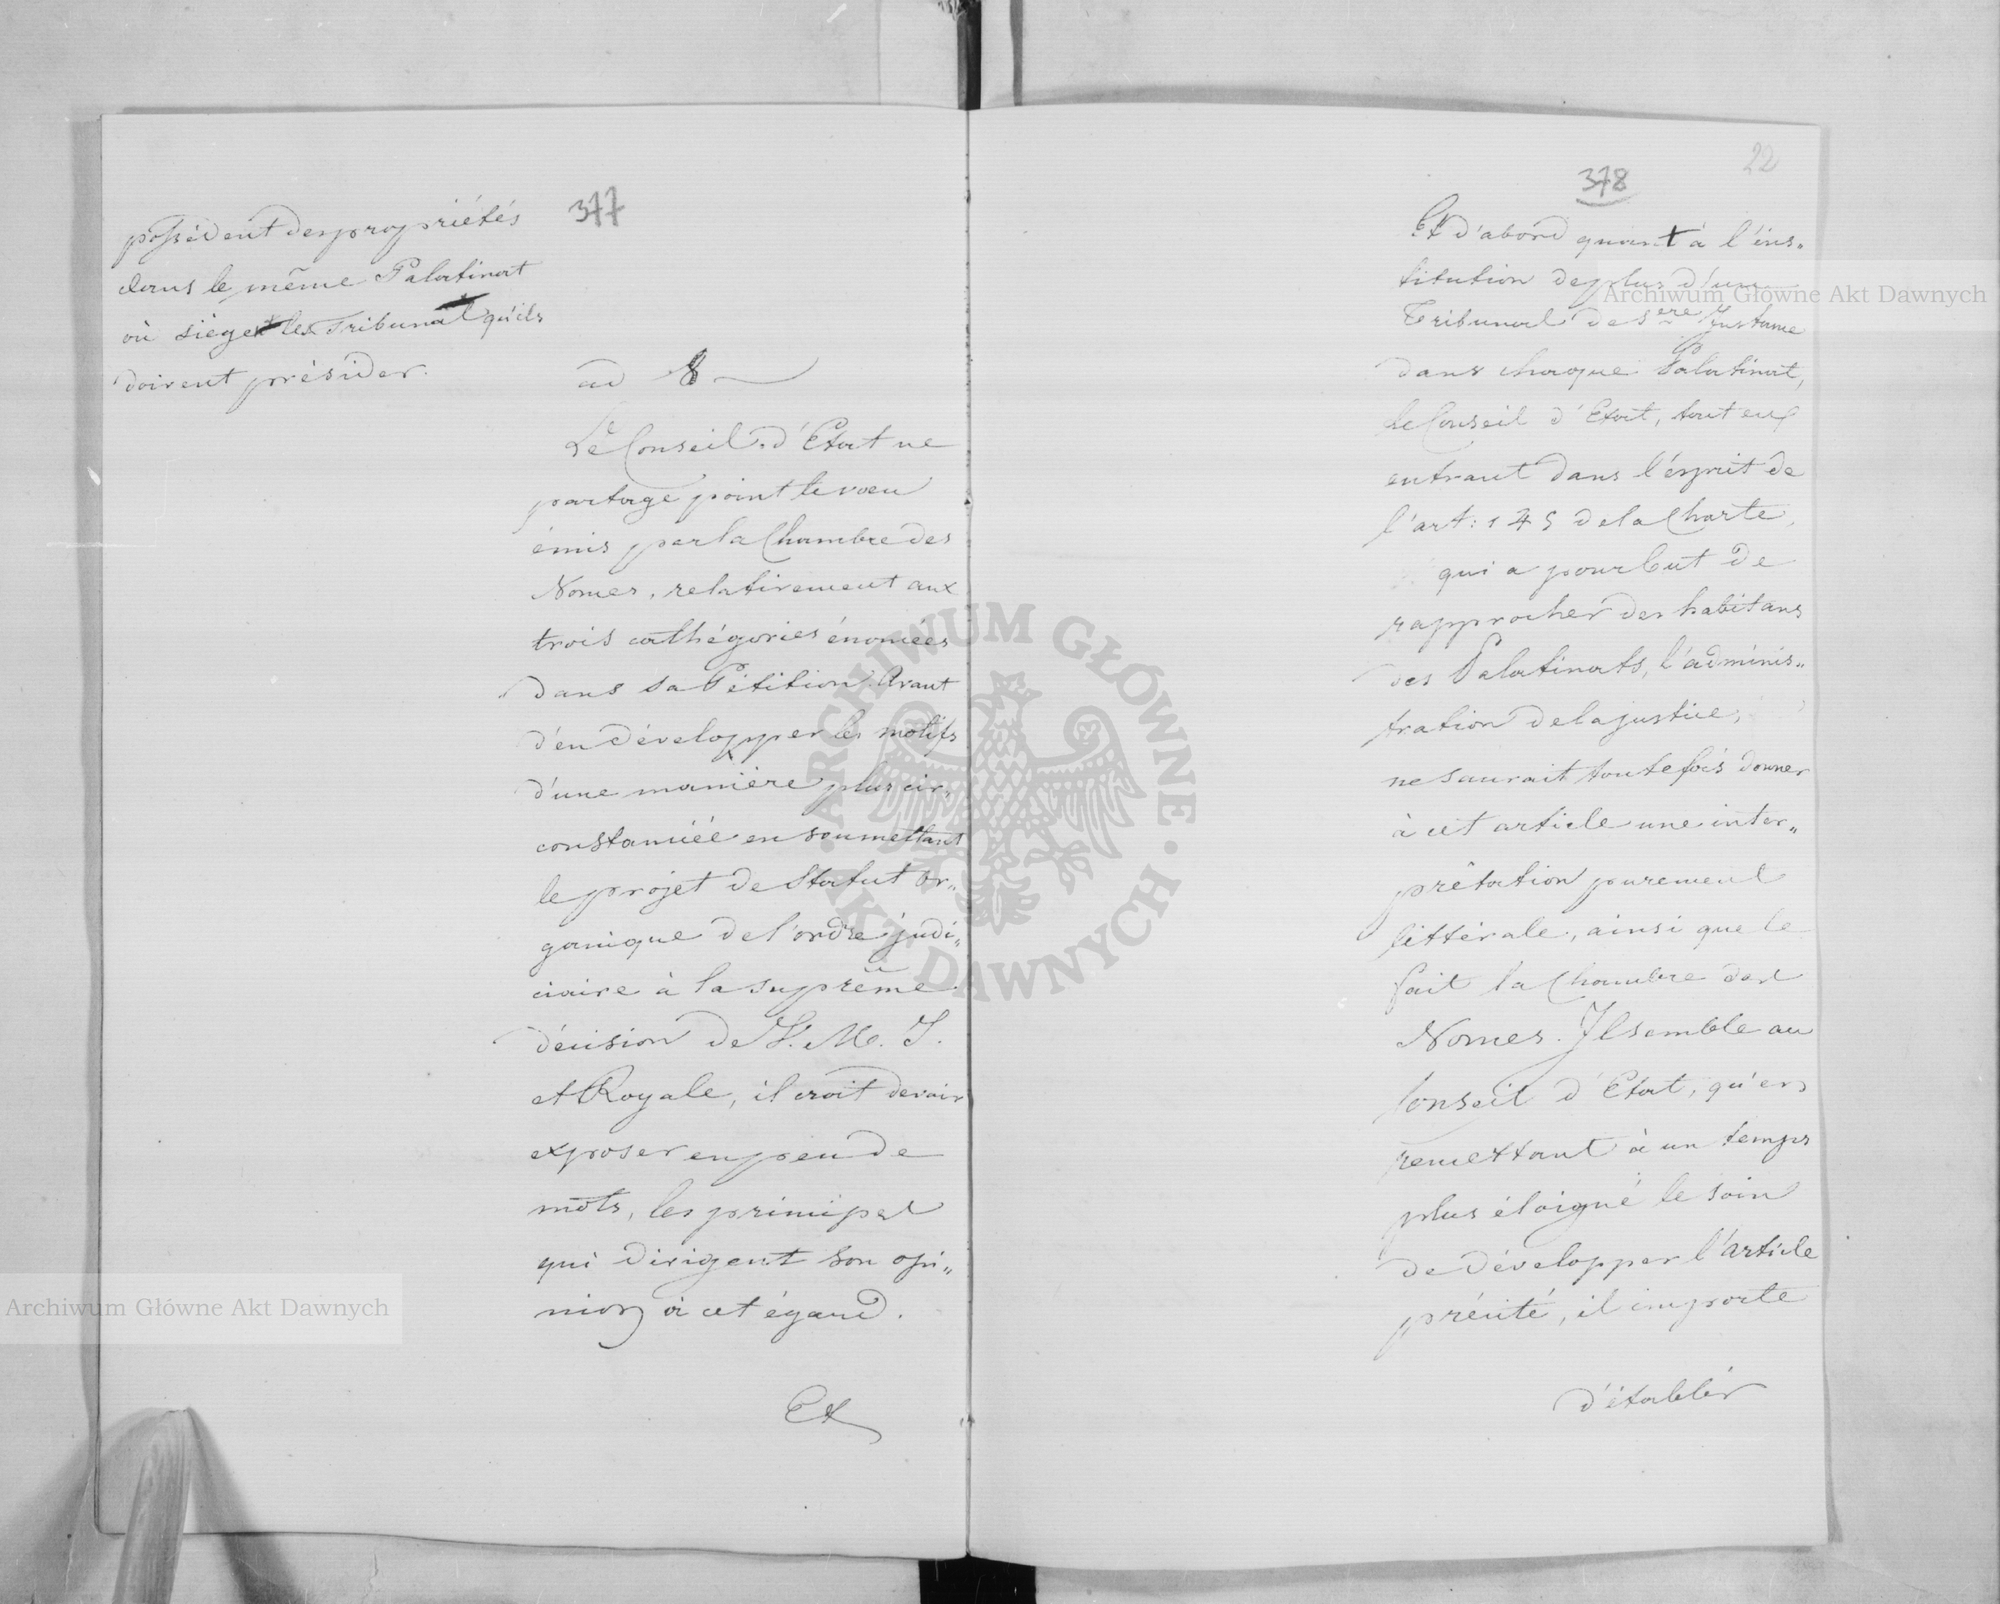 377
possèdent des propriétés
dans le même Palatinat
où siège le Tribunal qu'ils
doivent présider.
ad 8
Le Conseil d'Etat ne
partage point le voeu
émis par la Chambre des
Nonces, relativement aux
trois cathégories énoncées
dans sa Pétition. Avant
d'en développer les motifs
d'une manière plus cir„
constanciée en soumettant
le projet de Statut or„
ganique de l'ordre judi„
ciaire à la suprême
décision de S. M. I.
et Royale, il croit devoir
exposer en peu de
mots, les principes
qui dirigent son opi„
nion à cet égard.
Et
22
378
Et d'abord quant à l'ins„
titution de plus d'un
Tribunal de 1ère Instance
dans chaque Palatinat,
le Conseil d'Etat, tout en
entrant dans l'ésprit de
l'art: 145 de la Charte,
qui a pour but de
rapprocher des habitans
des Palatinats, l'adminis„
tration de la justice,
ne saurait toutefois donner
à cet article une inter„
prêtation purement
littérale, ainsi que le
fait la Chambre des
Nonces. Il semble au
Conseil d'Etat, qu'en
remettant à un temps
plus éloigné le soin
de développer l'article
précité, il importe
d'établir
Archiwum Główne Akt Dawnych
Archiwum Główne Akt Dawnych
ARCHIWUM GŁÓWNE · AKT DAWNYCH ·